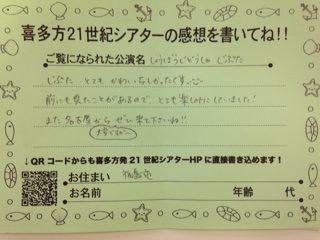 喜多方21世紀シアターの感想を書いてね!!
ご覧になられた公演名 しょうぼうじどうしゃ じぷた
じぷた とてもかわいらしかったです。
前にも見たことがあるので、とても楽しみにしていました!
また名古屋から ぜひ来て下さいね!!
↓QRコードからも喜多方発21世紀シアターHPに直接書き込めます!
お住まい 福島市
お名前 年齢 代